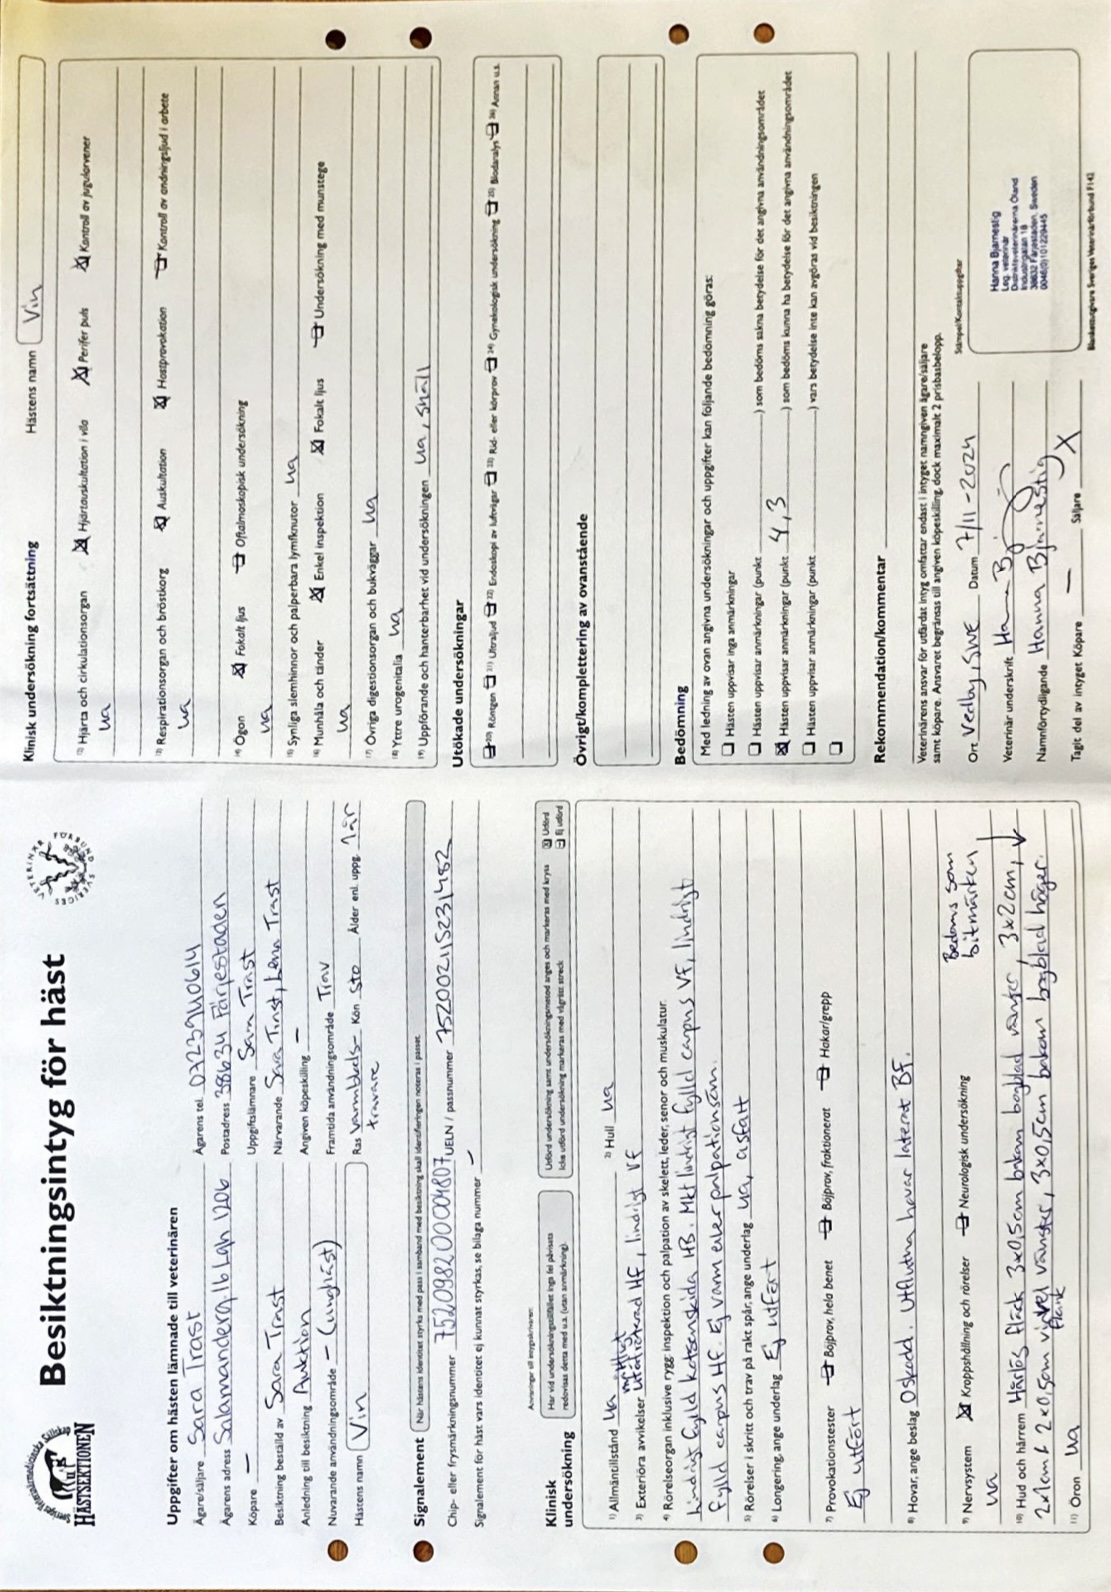 HÄSTSEKTIONEN
Besiktningsintyg för häst
SVERIGES VETERINÄRFÖRBUND
Uppgifter om hästen lämnade till veterinären
Ägare/säljare Sara Trast Ägarens tel. 0723940614
Ägarens adress Salamanderg. 16 Lgh 1206 Postadress 38634 Färjestaden
Köpare – Uppgiftslämnare Sara Trast
Besiktning beställd av Sara Trast Närvarande Sara Trast, Lena Trast
Anledning till besiktning Auktion Angiven köpeskilling –
Nuvarande användningsområde – (unghäst) Framtida användningsområde Trav
Hästens namn Vin Ras Varmblods- travare Kön Sto Ålder enl. uppg. 1 år
Signalement När hästens identitet styrks med pass i samband med besiktning skall identifieringen noteras i passet.
Chip- eller frysmärkningsnummer 752098200004807 UELN / passnummer 752002152231482
Signalement för häst vars identitet ej kunnat styrkas, se bilaga nummer –
Klinisk undersökning
Anvisningar till intygsskrivaren:
Har vid undersökningstillfället inga fel påvisats redovisas detta med u.a. (utan anmärkning).
Utförd undersökning samt undersökningsmetod anges och markeras med kryss
Icke utförd undersökning markeras med vågrätt streck
Utförd
Ej utförd
1) Allmäntillstånd ua 2) Hull ua
3) Exteriöra avvikelser måttligt utåtroterad HF, lindrigt VF
4) Rörelseorgan inklusive rygg inspektion och palpation av skelett, leder, senor och muskulatur.
Lindrigt fylld kotsenskida HB. Mkt lindrigt fylld carpus VF, lindrigt
fylld carpus HF. Ej varm eller palpationsöm.
5) Rörelser i skritt och trav på rakt spår, ange underlag ua, asfalt
6) Longering, ange underlag Ej utfört
7) Provokationstester Böjprov, hela benet Böjprov, fraktionerat Hakar/grepp
Ej utfört
8) Hovar, ange beslag Oskodd. Utflutna hovar lateralt BF.
9) Nervsystem Kroppshållning och rörelser Neurologisk undersökning
ua
Bedöms som bitmärken
10) Hud och hårrem Hårlös fläck 3x0,5cm bakom bogblad vänster, 3x2cm,
2x1cm & 2x0,5cm vänster flank, 3x0,5cm bakom bogblad höger.
11) Öron ua
Klinisk undersökning fortsättning Hästens namn Vin
12) Hjärta och cirkulationsorgan Hjärtauskultation i vila Perifer puls Kontroll av jugularvener
ua
13) Respirationsorgan och bröstkorg Auskultation Hostprovokation Kontroll av andningsljud i arbete
ua
14) Ögon Fokalt ljus Oftalmoskopisk undersökning
ua
15) Synliga slemhinnor och palperbara lymfknutor ua
16) Munhåla och tänder Enkel inspektion Fokalt ljus Undersökning med munstege
ua
17) Övriga digestionsorgan och bukväggar ua
18) Yttre urogenitalia ua
19) Uppförande och hanterbarhet vid undersökningen ua, snäll
Utökade undersökningar
20) Röntgen 21) Ultraljud 22) Endoskopi av luftvägar 23) Rid- eller körprov 24) Gynekologisk undersökning 25) Blodanalys 26) Annan u.s.
Övrigt/komplettering av ovanstående
Bedömning
Med ledning av ovan angivna undersökningar och uppgifter kan följande bedömning göras:
Hästen uppvisar inga anmärkningar
Hästen uppvisar anmärkningar (punkt ) som bedöms sakna betydelse för det angivna användningsområdet
Hästen uppvisar anmärkningar (punkt 4, 3 ) som bedöms kunna ha betydelse för det angivna användningsområdet
Hästen uppvisar anmärkningar (punkt ) vars betydelse inte kan avgöras vid besiktningen
Rekommendation/kommentar
Veterinärens ansvar för utfärdat intyg omfattar endast i intyget namngiven ägare/säljare
samt köpare. Ansvaret begränsas till angiven köpeskilling, dock maximalt 2 prisbasbelopp.
Ort Vedby, SWE Datum 7/11-2024
Veterinär underskrift Hanna Bj
Namnförtydligande Hanna Bjarnestig
Tagit del av intyget Köpare – Säljare X
Stämpel/Kontaktuppgifter
Hanna Bjarnestig
Leg. veterinär
Distriktsveterinärerna Öland
Industrigatan 18
38632 Färjestaden, Sweden
0046(0)101229445
Blankettutgivare Sveriges Veterinärförbund F142